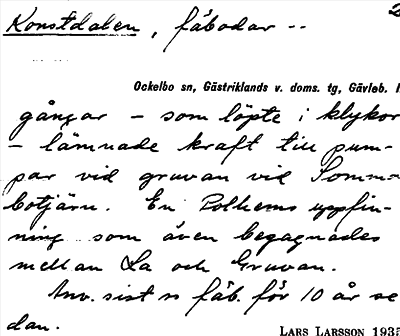 Konstdalen, fäbodar --
2
Ockelbo sn, Gästriklands v. doms. tg, Gävleb. l
gångar - som löpte i klykor
- lämnade kraft till pum-
par vid gruvan vid Somma-
botjärn. En Polhems uppfin-
ning som även begagnades
mellan La och Gruvan.
Anv. sist ss fäb. för 10 år se
dan.
LARS LARSSON 1935